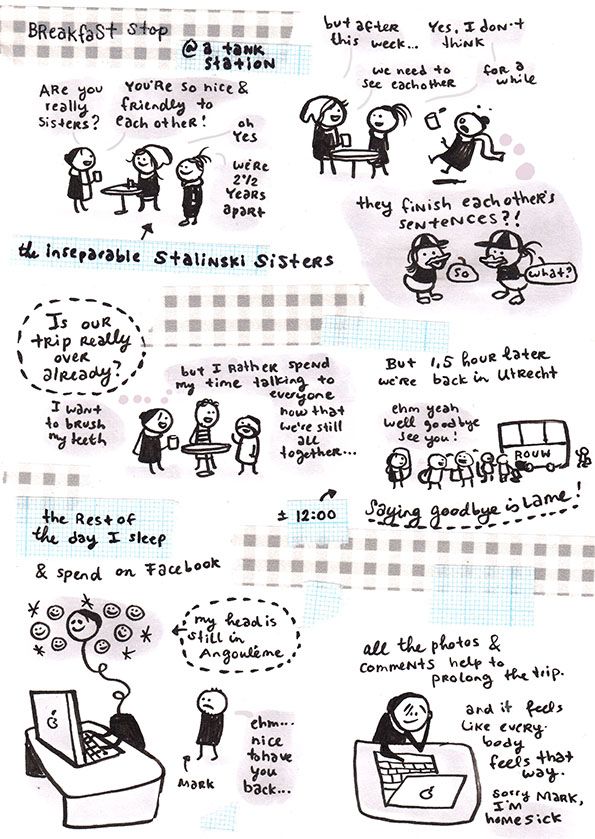 BReakfaSt Stop
@ a tank
station
ARe you
Really
Sisters?
YOU'Re so nice &
friendly to
each other!
oh
Yes
WE'RE
2 1/2
Years
apart
the inseparable Stalinski Sisters
but after
this week...
Yes, I don't
think
we need to
see eachother
for a
while
they finish each other's
sentences?!
So
what?
Is our
trip really
over
already?
I want
to brush
my teeth
but I Rather spend
my time talking to
everyone
now that
we're still
all
together...
But 1,5 hour later
we're back in Utrecht
ehm yeah
well goodbye
see you!
ROUW
± 12:00
Saying goodbye is lame!
the Rest of
the day I sleep
& spend on Facebook
my head is
still in
Angoulême
Mark
ehm...
nice
to have
you
back...
all the photos &
comments help to
prolong the trip.
and it feels
like every-
body
feels that
way.
sorry Mark,
I'm
homesick